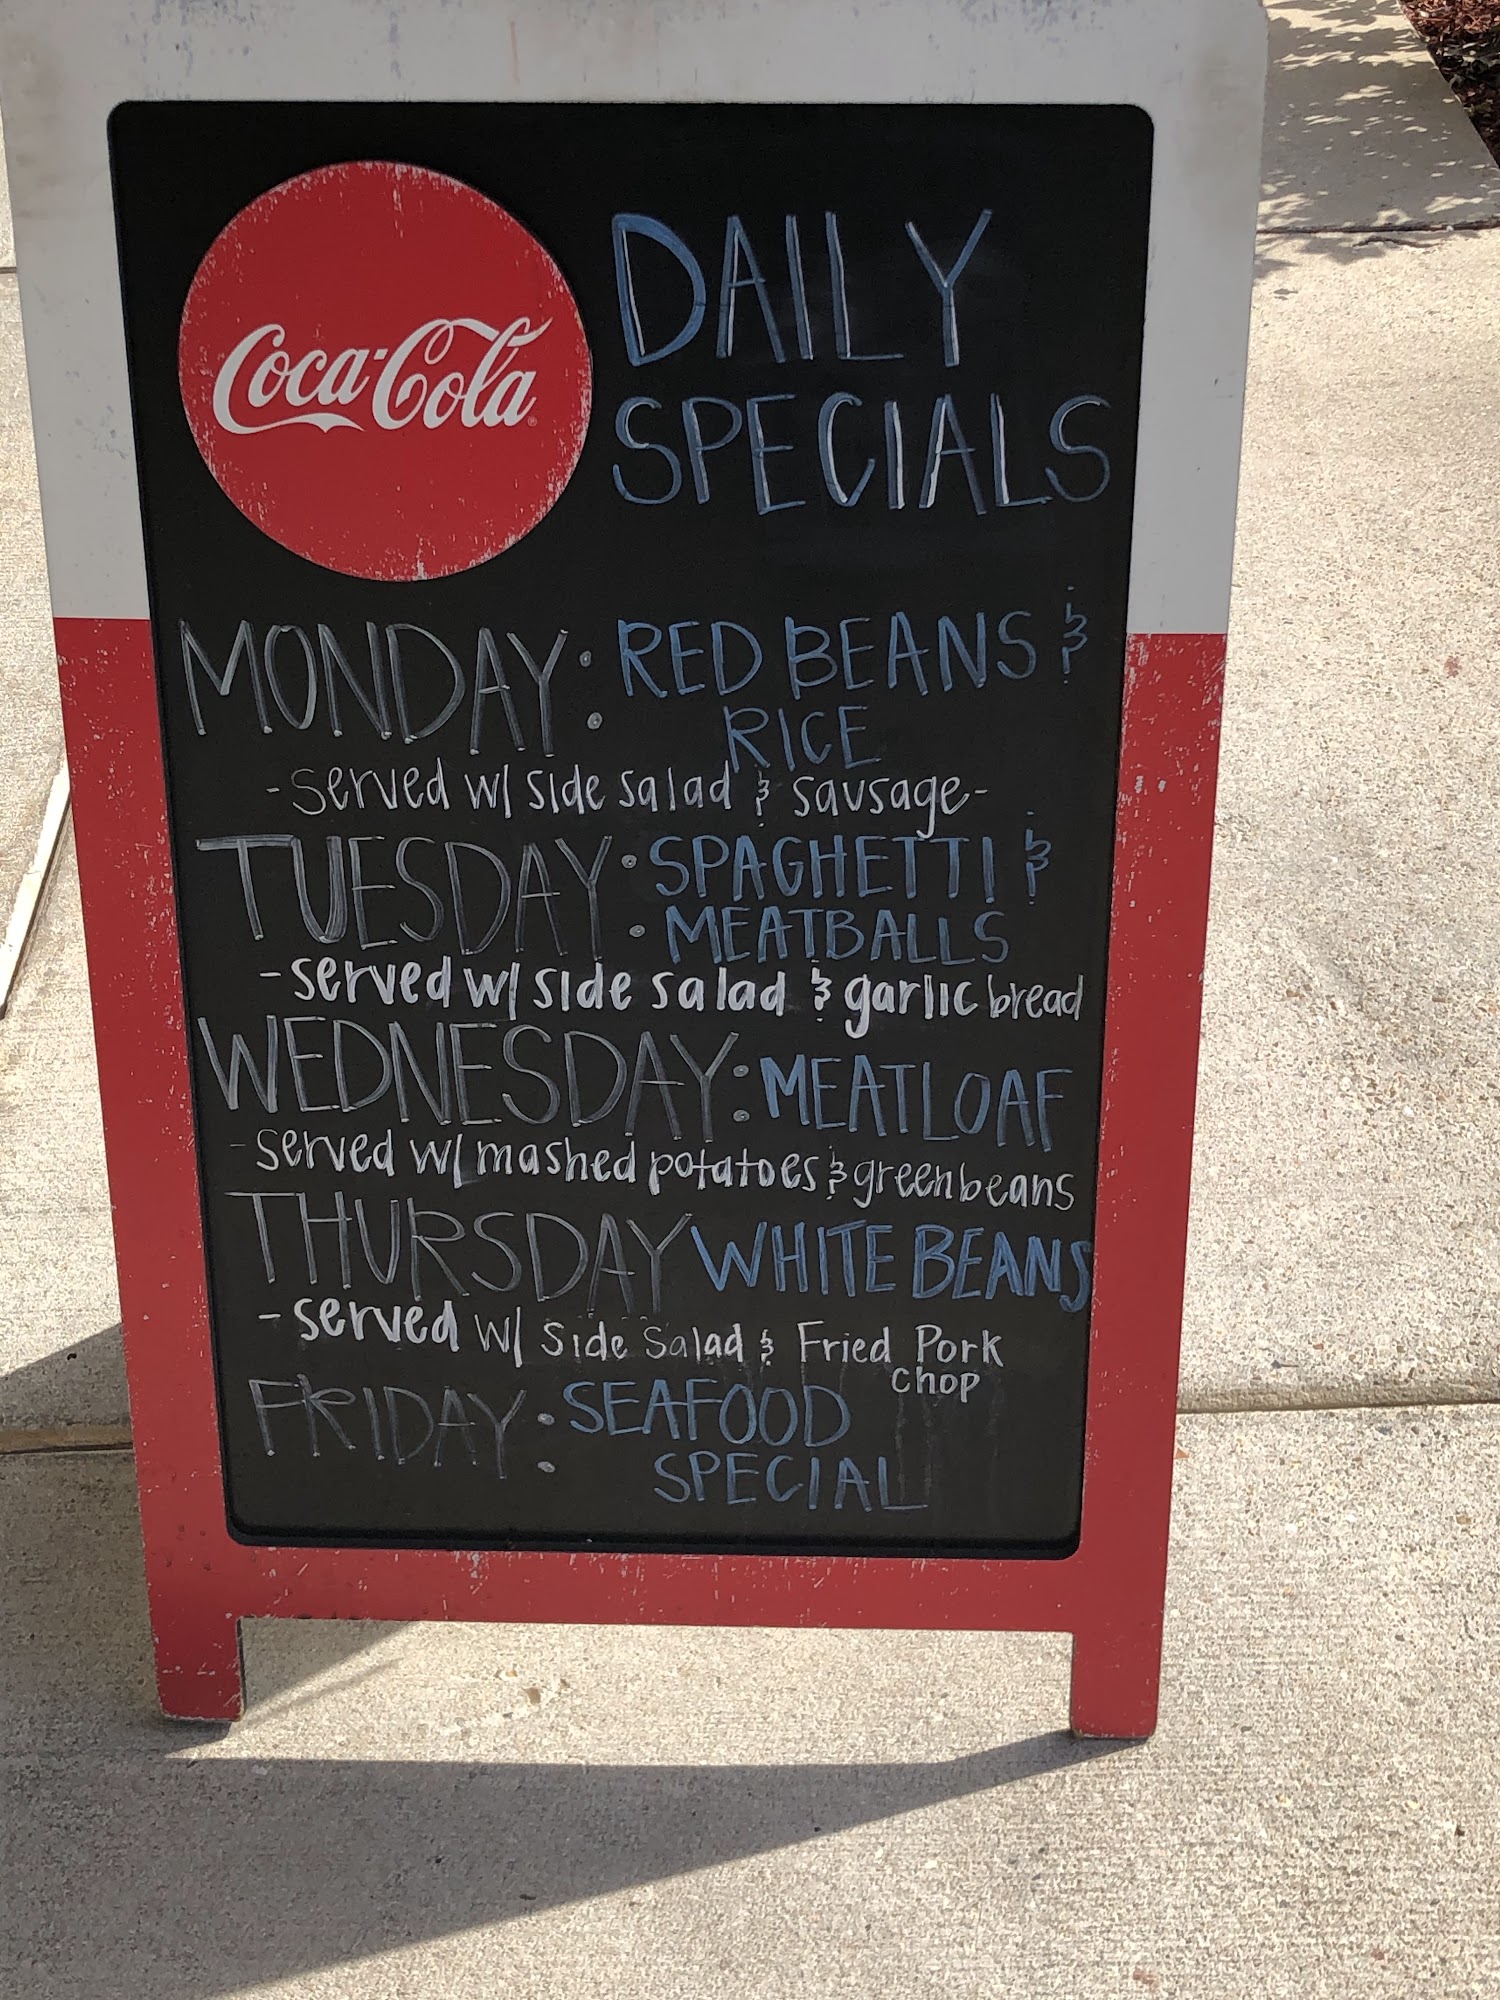 Coca-Cola
DAILY
SPECIALS
MONDAY: RED BEANS &
RICE
-served w/ side salad & sausage-
TUESDAY: SPAGHETTI &
MEATBALLS
-served w/ side salad & garlic bread
WEDNESDAY: MEATLOAF
-served w/ mashed potatoes & green beans
THURSDAY WHITE BEANS
-served w/ Side Salad & Fried Pork
chop
FRIDAY: SEAFOOD
SPECIAL